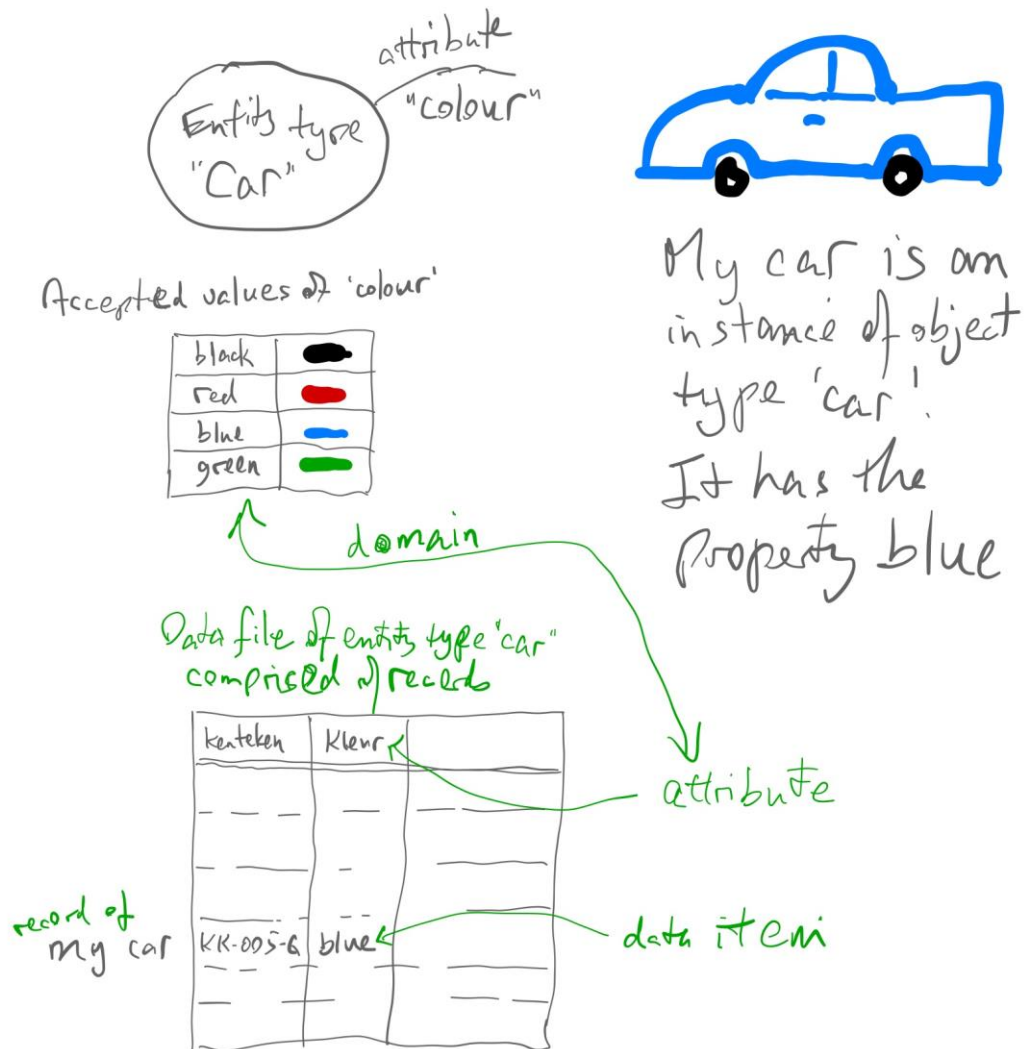 attribute
"colour"
Entity type
"Car"
My car is an
instance of object
type 'car'.
It has the
Property blue
Accepted values of 'colour'
black
red
blue
green
domain
Data file of entity type "car"
comprised of records
kenteken Kleur
attribute
record of
my car KK-005-G blue
data item